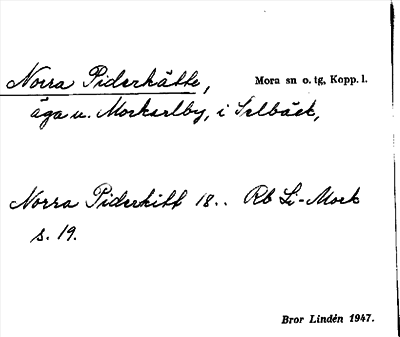 Norra Piderkätte, Mora sn o. tg, Kopp. l.
äga u. Morkarlby, i Selbäck,
Norra Piderkitt 18.. Rb Li-Mork
s. 19.
Bror Lindén 1947.